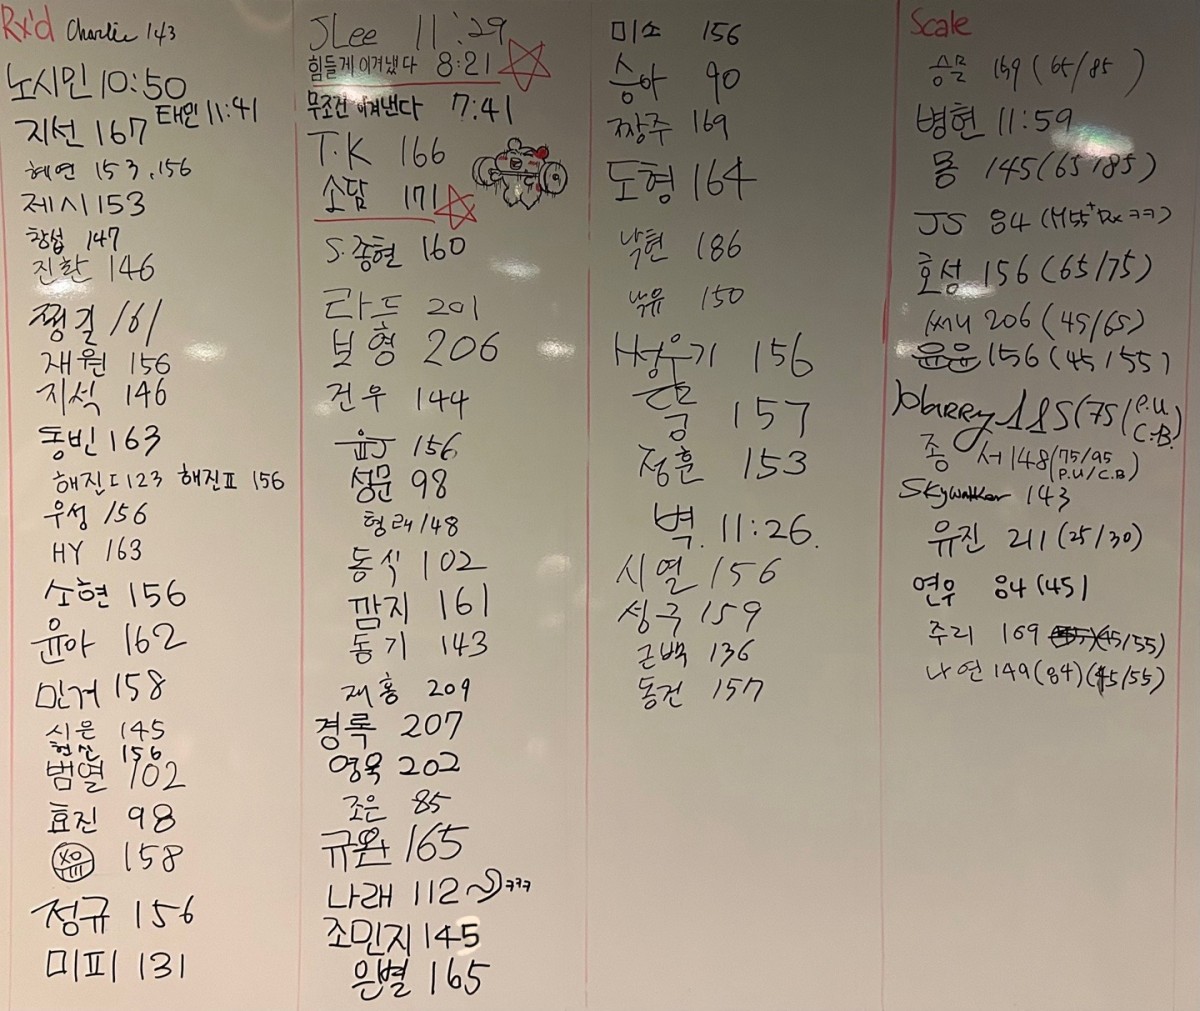 Rx'd Charlie 143
노시민 10:50
태민 11:41
지선 167
혜연 153, 156
제시 153
창섭 147
진환 146
찡길 161
재원 156
지석 146
동빈 163
해진I 123 해진II 156
우성 156
HY 163
소현 156
윤아 162
민거 158
시은 145
현산 156
범열 102
효진 98
XO III 158
정규 156
미피 131
JLee 11:29
힘들게 이겨냈다 8:21
무조건 이겨낸다 7:41
T.K 166
소담 171
S.종현 160
라드 201
보형 206
건우 144
윤J 156
성문 98
형래 148
동식 102
깜지 161
동기 143
재홍 209
경록 207
영욱 202
조은 85
규완 165
나래 112 ㅋㅋㅋ
조민지 145
은별 165
미소 156
승아 90
짱주 169
도형 164
낙현 186
낙유 150
H성우기 156
157
정훈 153
벽. 11:26.
시열 156
성국 159
근백 136
동건 157
Scale
승모 169 (65/85)
병현 11:59
몽 145 (65/85)
JS 84 (M55+Rx ㅋㅋ)
호성 156 (65/75)
써니 206 (45/65)
윤윤 156 (45/55)
JobaRRy 115 (75/P.U C.B)
종서 148 (75/95 P.U/C.B)
Skywalker 143
유진 211 (25/30)
연우 84 (45)
주리 169 (45/55)
나연 149 (84) (45/55)